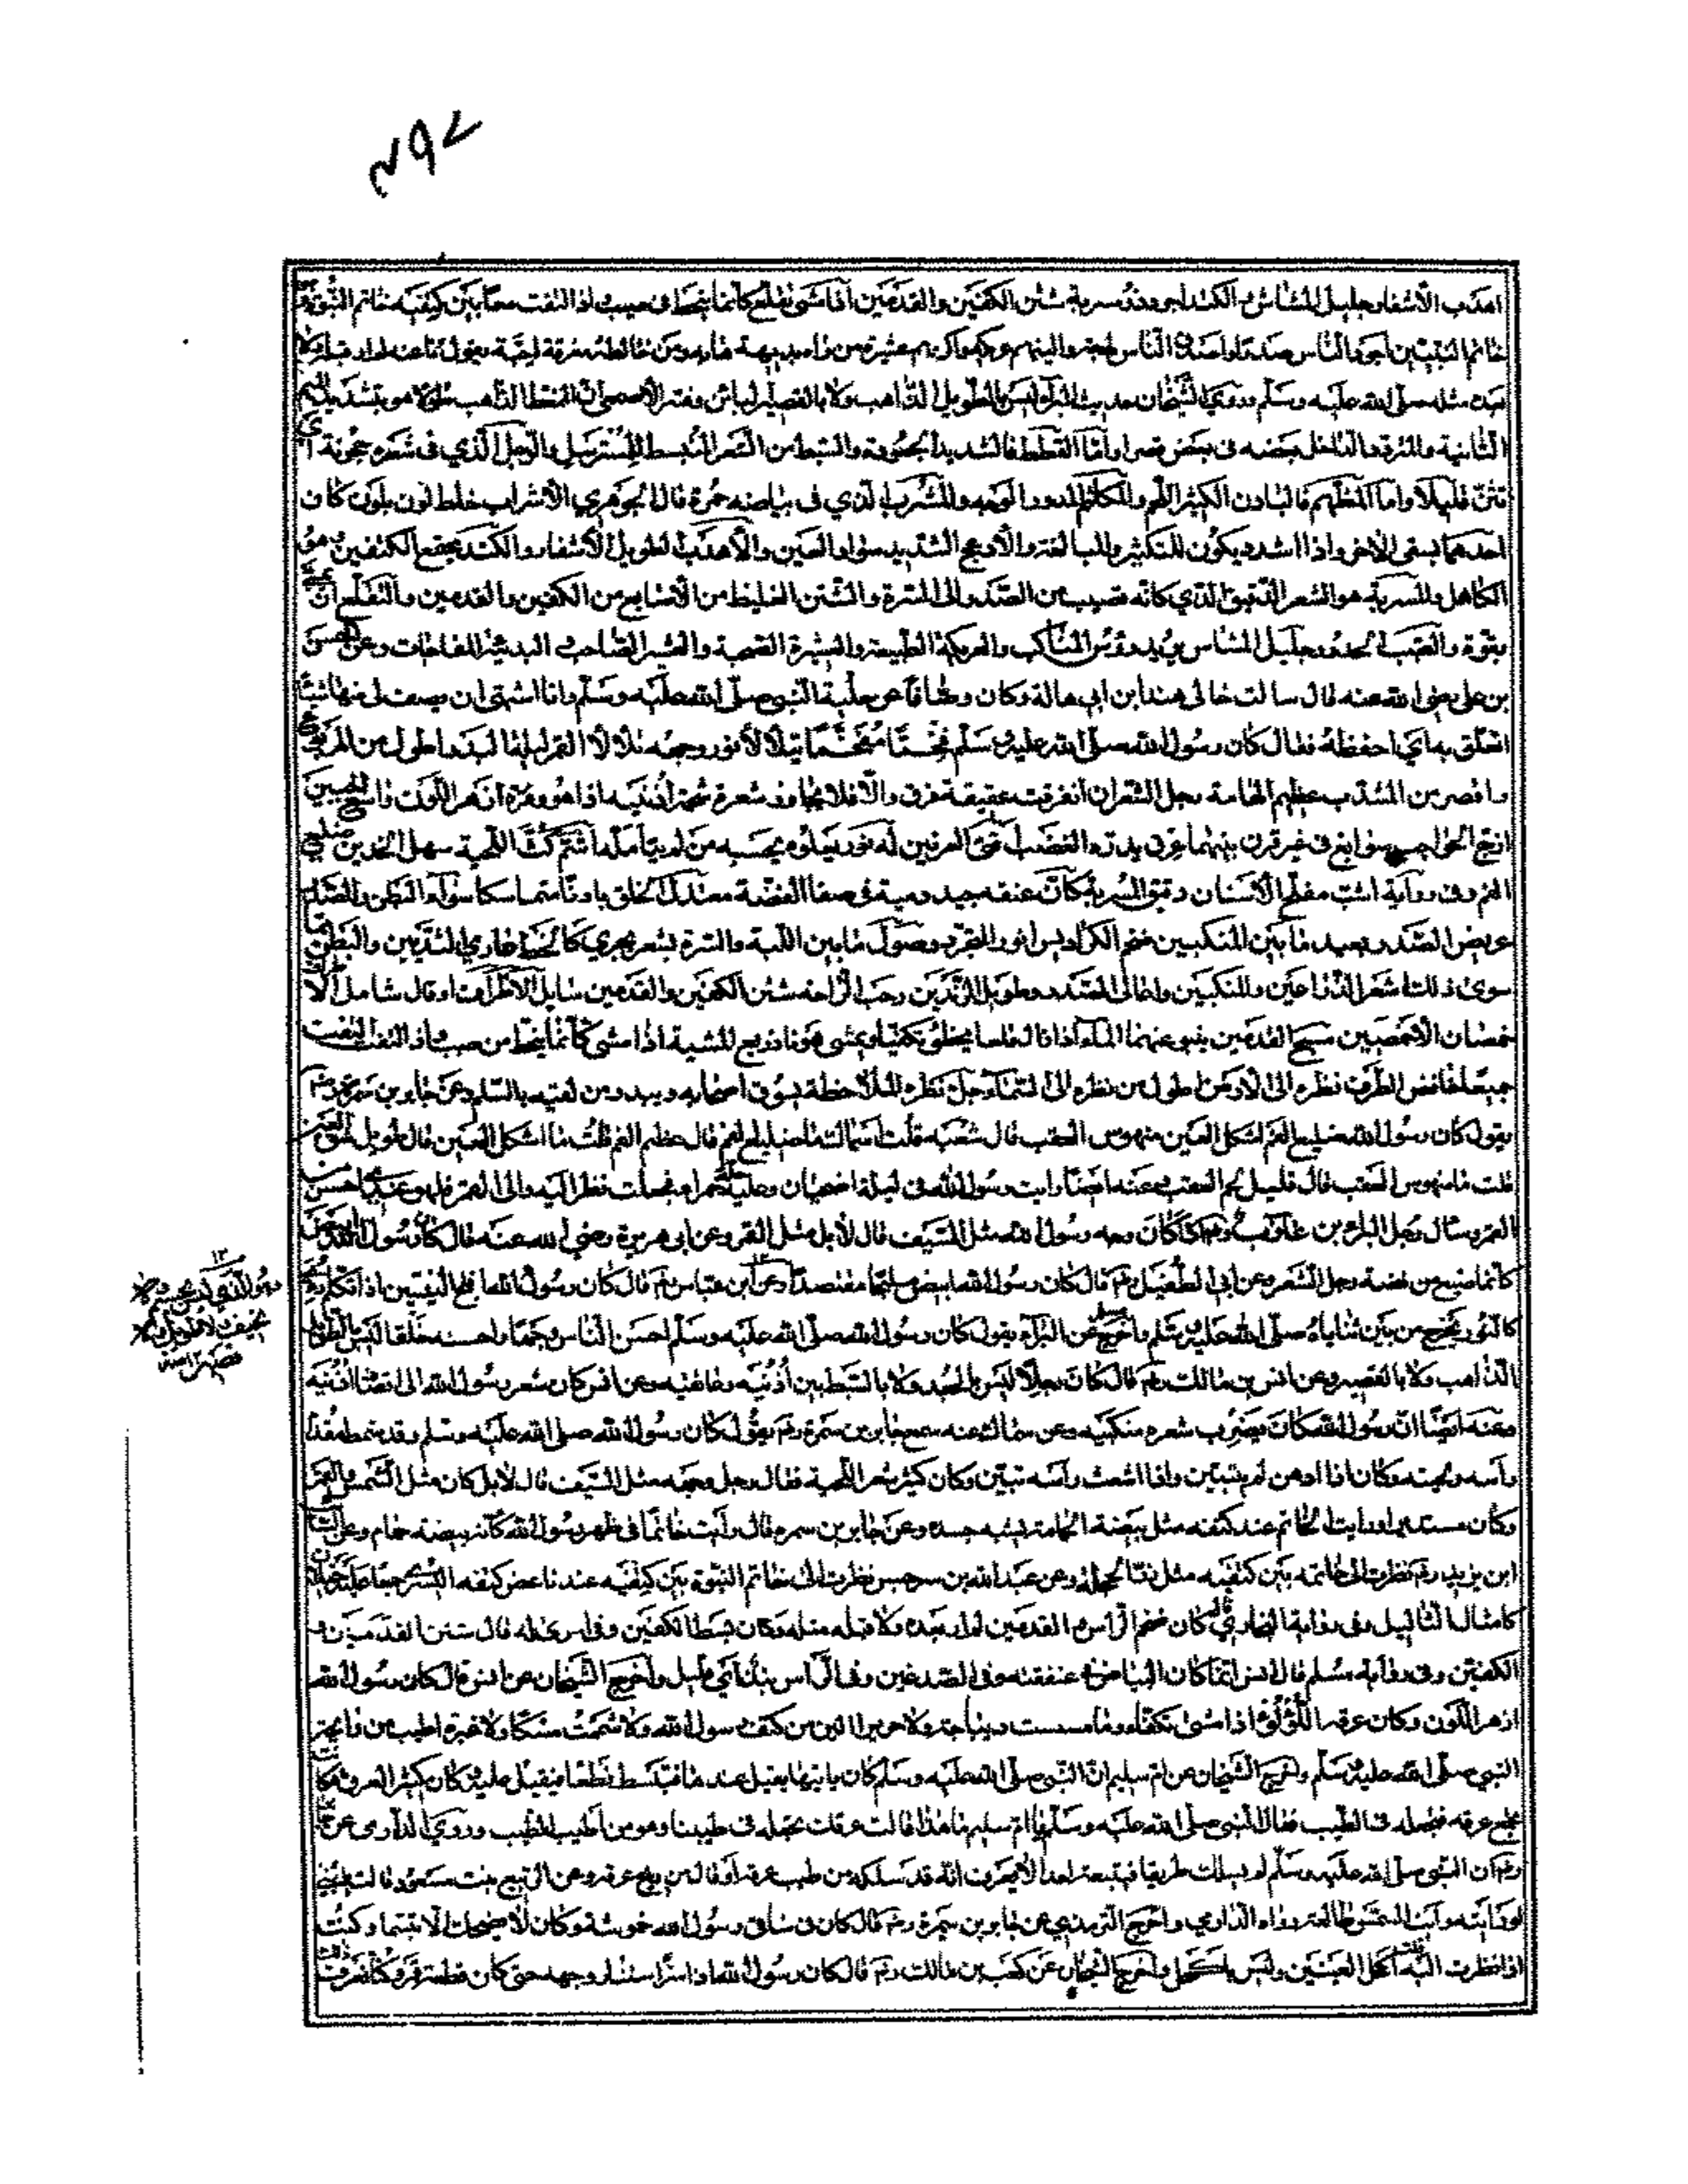 ۲۹۷
اهدب الاشفار جليل المشاش والكتد اجرد ذو مسربة شثن الكفين والقدمين اذا مشى تقلع كانما ينحط في صبب واذا التفت معا بين كتفيه خاتم النبوة وهو
خاتم النبيين اجود الناس صدرا واصدق الناس لهجة والينهم عريكة واكرمهم عشيرة من راه بديهة هابه ومن خالطه معرفة احبه يقول ناعته لم ار قبله ولا
بعده مثله صلى الله عليه وسلم وروى الشيخان حديث البراء ليس بالطويل الذاهب ولا بالقصير الممغط الذاهب طولا هو بتشديد الميم
الثانية والمتردد الداخل بعضه في بعض قصرا واما القطط فالشديد الجعودة والسبط من الشعر المنبسط المسترسل والرجل الذي في شعره حجونة اي
تثن قليلا واما المطهم فالبادن الكثير اللحم والمكلثم المدور الوجه والمشرب الذي في بياضه حمرة قال الجوهري الاشراب خلط لون بلون كان
احدهما يسقى الاخر واذا شدد يكون للتكثير والمبالغة والادعج الشديد سواد العين والاهدب الطويل الاشفار والكتد مجتمع الكتفين وهو
الكاهل والمسربة هو الشعر الدقيق الذي كانه قضيب من الصدر الى السرة والشثن الغليظ من الاصابع من الكفين والقدمين والتقلع ان يمشي
بقوة والصبب الحدور جليل المشاش يريد رؤس المناكب والعريكة الطبيعة والعشيرة الصحبة والعشير الصاحب البديهة المفاجات وعن الحسن
بن علي رضي الله عنه قال سالت خالي هند ابن ابي هالة وكان وصافا عن حلية النبي صلى الله عليه وسلم وانا اشتهي ان يصف لي منها شيئا
اتعلق به اي احفظه فقال كان رسول الله صلى الله عليه وسلم فخما مفخما يتلألأ نور وجهه تلألأ القمر ليلة البدر اطول من المربوع
واقصر من المشذب عظيم الهامة رجل الشعر ان انفرقت عقيقته فرق والا فلا يجاوز شعره شحمة اذنيه اذا هو وفره ازهر اللون واسع الجبين
ازج الحواجب سوابغ في غير قرن بينهما عرق يدره الغضب اقنى العرنين له نور يعلوه يحسبه من لم يتامله اشم كث اللحية سهل الخدين ضليع
الفم وفي رواية اشنب مفلج الاسنان دقيق المسربة كان عنقه جيد دمية في صفا الفضة معتدل الخلق بادنا متماسكا سواء البطن والصدر
عريض الصدر بعيد ما بين المنكبين ضخم الكراديس انور المتجرد موصول ما بين اللبة والسرة بشعر يجري كالخط عاري الثديين والبطن مما
سوى ذلك اشعر الذراعين والمنكبين واعالي الصدر طويل الزندين رحب الراحة شثن الكفين والقدمين سايل الاطراف او قال شامل الاطراف
خمصان الاخمصين مسيح القدمين ينبو عنهما الماء اذا زال قلعا يخطو تكفيا ويمشي هونا ذريع المشية اذا مشى كانما ينحط من صبب واذا التفت التفت
جميعا خافض الطرف نظره الى الارض اطول من نظره الى السماء جل نظره الملاحظة يسوق اصحابه ويبدر من لقيه بالسلام وعن جابر بن سمرة
يقول كان رسول الله ضليع الفم اشكل العين منهوس العقب قال شعبة قلت لسماك ما ضليع الفم قال عظيم الفم قلت ما اشكل العين قال طويل شق العين
قلت ما منهوس العقب قال قليل لحم العقب وعنه ايضا رايت رسول الله في ليلة اضحيان وعليه حلة حمراء فجعلت نظر اليه والى القمر فلهو عندي احسن من
القمر وسال رجل البراء بن عازب اكان وجه رسول الله مثل السيف قال لا بل مثل القمر وعن ابي هريرة رضي الله عنه قال كان رسول الله ابيض
كانما صيغ من فضة رجل الشعر وعن ابي الطفيل قال كان رسول الله ابيض مليحا مقصدا وعن ابن عباس قال كان رسول الله افلج الثنيتين اذا تكلم رئي
كالنور يخرج من بين ثناياه صلى الله عليه وسلم واخرج مسلم عن البراء يقول كان رسول الله صلى الله عليه وسلم احسن الناس وجها واحسنه خلقا ليس بالطويل
الذاهب ولا بالقصير وعن انس بن مالك قال كان رجلا ليس بالجعد ولا بالسبط بين اذنيه وعاتقيه وعن انس كان شعر رسول الله الى انصاف اذنيه
وعنه ايضا ان رسول الله كان يضرب شعره منكبيه وعن سماك انه سمع جابر بن سمرة يقول كان رسول الله صلى الله عليه وسلم قد شمط مقدم
رأسه ولحيته وكان اذا ادهن لم يتبين واذا شعث رأسه تبين وكان كثير شعر اللحية فقال رجل وجهه مثل السيف قال لا بل كان مثل الشمس والقمر
وكان مستديرا ورايت الخاتم عند كتفه مثل بيضة الحمامة يشبه جسده وعن جابر بن سمره قال رايت خاتما في ظهر رسول الله كانه بيضة حمام وعن السائب
ابن يزيد نظرت الى خاتمه بين كتفيه مثل زر الحجلة وعن عبد الله بن سرجس نظرت الى خاتم النبوة بين كتفيه عند ناغض كتفه اليسرى جمعا عليه خيلان
كامثال الثاليل وفي رواية البخاري قال كان ضخم الراس والقدمين لم ار بعده ولا قبله مثله وكان بسط الكفين وفي اخرى له قال شثن القدمين و
الكفين وفي رواية مسلم قال انس انما كان البياض في عنفقته وفي الصدغين وفي الراس نبذ اي قليل واخرج الشيخان عن انس قال كان رسول الله
ازهر اللون وكان عرقه اللؤلؤ اذا مشى تكفاء وما مسست ديباجة ولا حريرا الين من كف رسول الله ولا شممت مسكا ولا عنبرة اطيب من رايحة
النبي صلى الله عليه وسلم واخرج الشيخان عن ام سليم ان النبي صلى الله عليه وسلم كان ياتيها يقيل عندها فتبسط نطعا فيقيل عليه وكان كثير العرق فكانت
تجمع عرقه فتجعله في الطيب فقال النبي صلى الله عليه وسلم يا ام سليم ما هذا قالت عرقك نجعله في طيبنا وهو من اطيب الطيب وروى الدارمي عن جابر
ان النبي صلى الله عليه وسلم لم يسلك طريقا فيتبعه احد الا يعرف انه قد سلكه من طيب عرقه او قال من ريح عرقه وعن الربيع بنت معوذ قالت
لو رايته رايت الشمس طالعة رواه الدارمي واخرج الترمذي عن جابر بن سمرة قال كان في ساقي رسول الله حموشة وكان لا يضحك الا تبسما وكنت
اذا نظرت اليه قلت اكحل العينين وليس باكحل واخرج الشيخان عن كعب بن مالك قال كان رسول الله اذا سر استنار وجهه حتى كان قطعة قمر وكنا نعرف ذلك